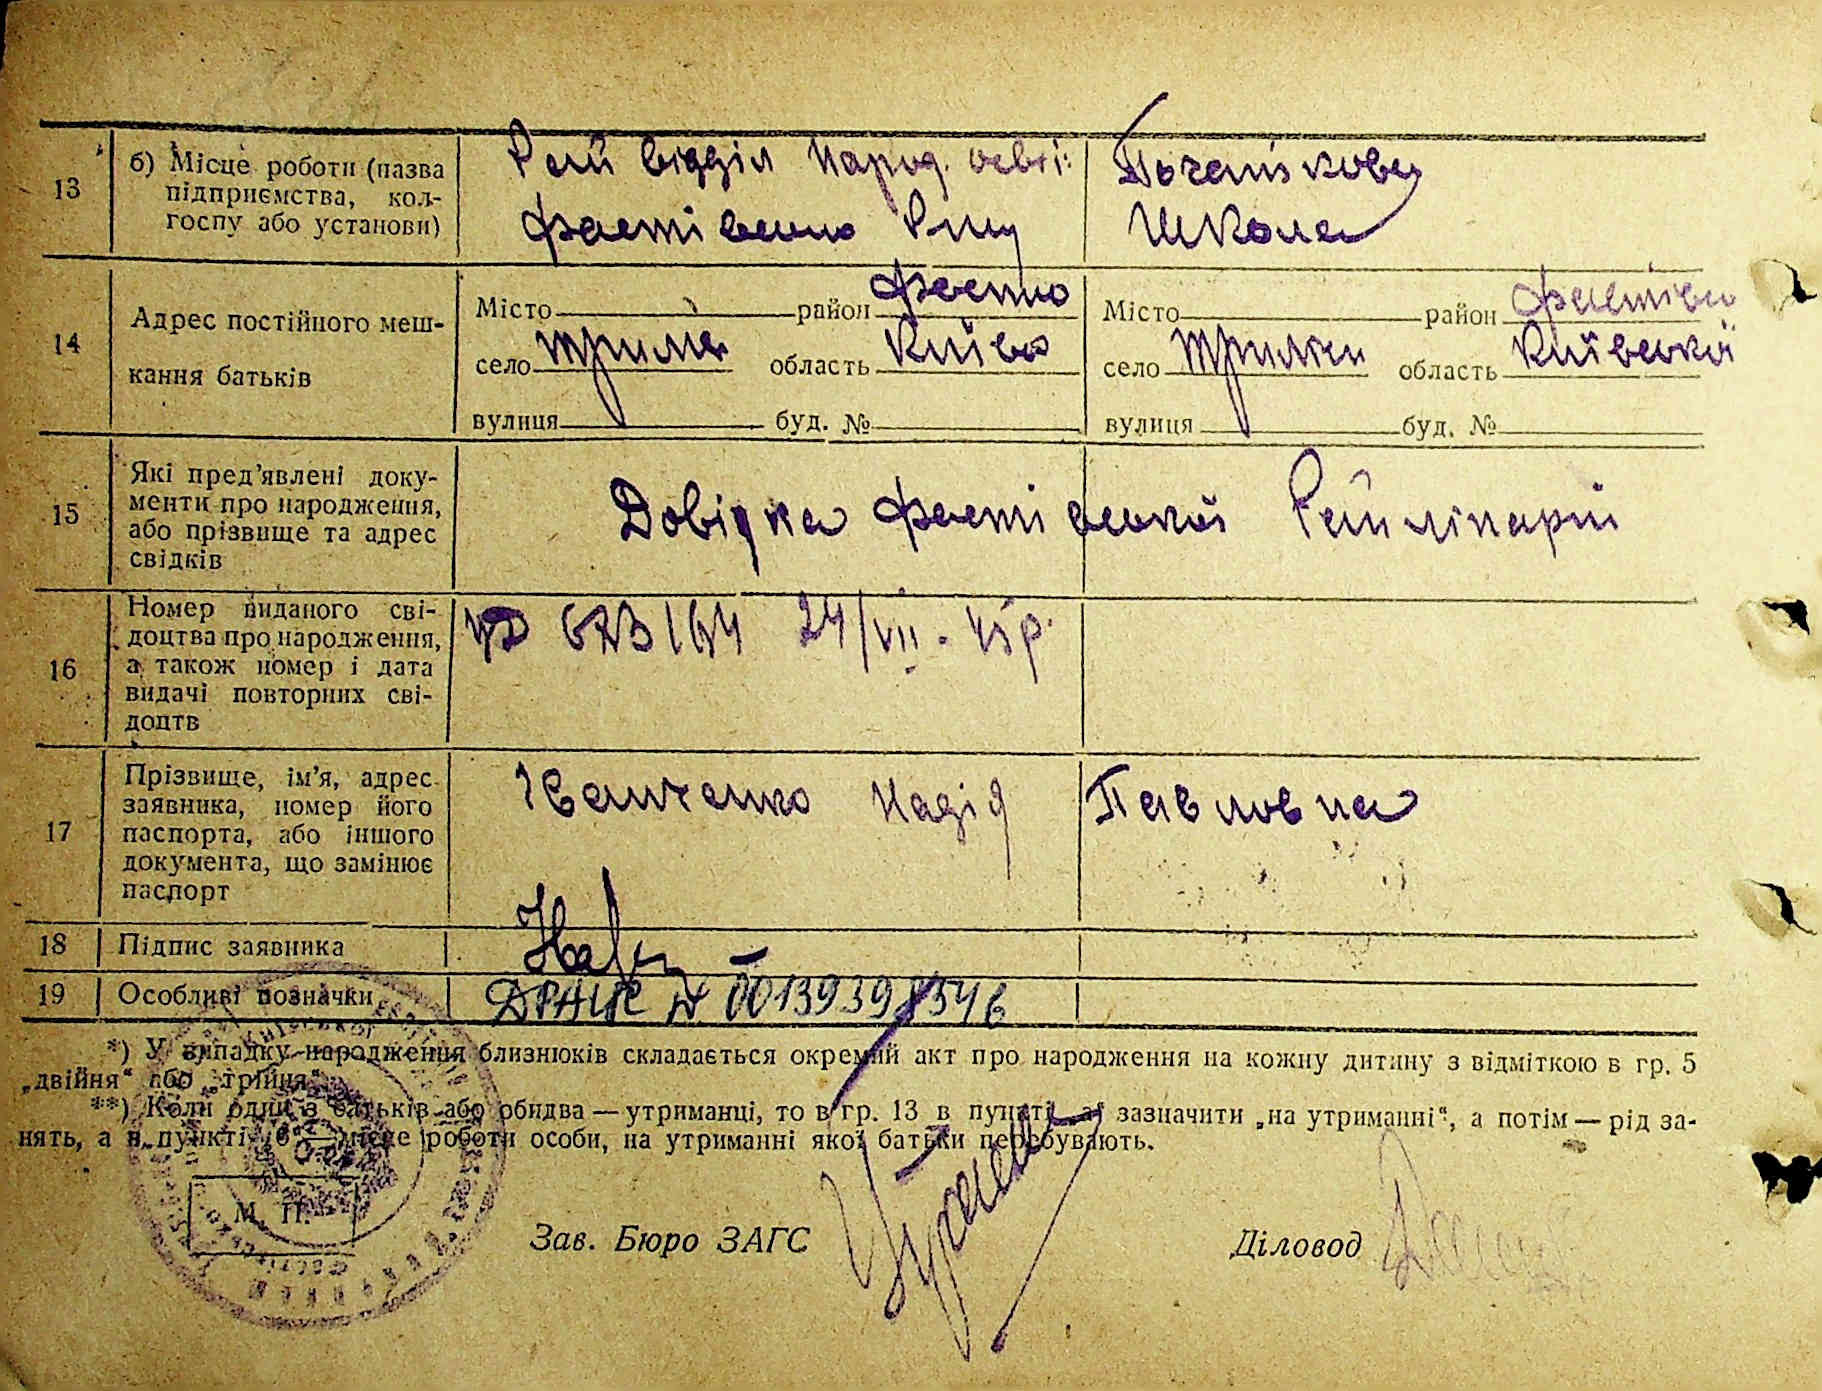 13 б) Місце роботи (назва підприємства, колгоспу або установи)
Рай відділ Народ. осві:
Початкова
Школа
14 Адрес постійного меш-
кання батьків
Місто район Фастів
село область Київс
вулиця буд. №
Місто район Фастівсь
село область Київської
вулиця буд. №
15 Які пред'явлені доку-
менти про народження,
або прізвище та адрес
свідків
Довідка Фастівської Райлікарні
16 Номер виданого сві-
доцтва про народження,
а також номер і дата
видачі повторних сві-
доцтв
24/VII
17 Прізвище, ім'я, адрес
заявника, номер його
паспорта, або іншого
документа, що замінює
паспорт
Іванченко Надія Павловна
18 Підпис заявника
19 Особливі позначки
ДРАЦС № 00139398546
*) У випадку народження близнюків складається окремий акт про народження на кожну дитину з відміткою в гр. 5
„двійня“ або „трійня“.
**) Коли один з батьків або обидва — утриманці, то в гр. 13 в пункті „а“ зазначити „на утриманні“, а потім — рід за-
нять, а в пункті „б“ — місце роботи особи, на утриманні якої батьки перебувають.
М. П.
Зав. Бюро ЗАГС
Діловод